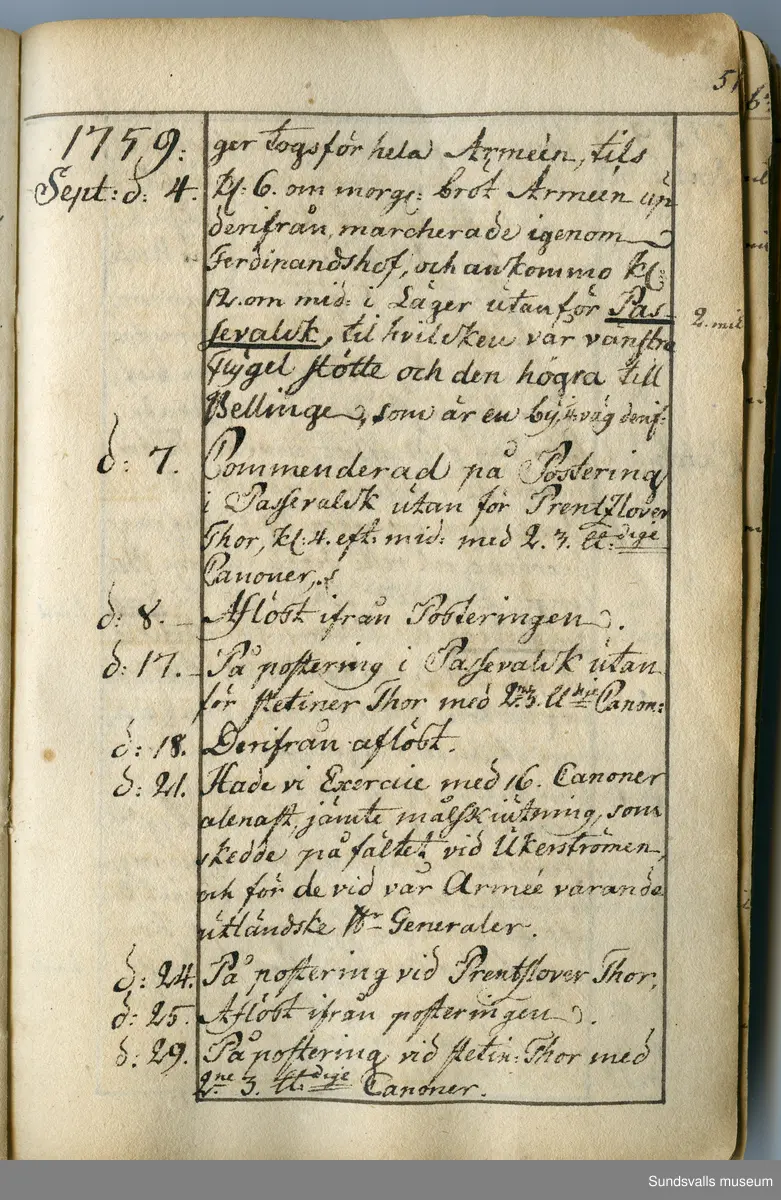 51
1759: ger togs för hela Arméen, tils
Sept: d: 4. kl: 6. om morg: bröt Arméen up
derifrån, marcherade igenom
Ferdinandshof, och ankommo kl:
12. om mid: i Läger utanför Pas-
sevalsk, til hvilcken vår vänstra 2. mil
flÿgel stötte och den högra till
Bellinge, som är en bÿ, väg derif:
d: 7. Commenderad på Postering
i Passevalsk utan för Prentslover
Thor, kl: 4. eft: mid: med 2. 3. ℔:dige
Canoner,
d: 8. Aflöst ifrån Posteringen.
d: 17. På postering i Passevalsk utan
för stetiner Thor med 2ne 3. ℔ Canon:
d: 18. Derifrån aflöst.
d: 21. Hade vi Exercie med 16. Canoner
alenast, jämte målskiutning, som
skedde på fältet vid Ukerströmen,
och för de vid vår Armée varande
utländske Hr Generaler.
d: 24. På postering vid Prentslover Thor,
d: 25. Aflöst ifrån posteringen.
d: 29. På postering vid stetin: Thor med
2ne 3. ℔:dige Canoner.
Sundsvalls museum